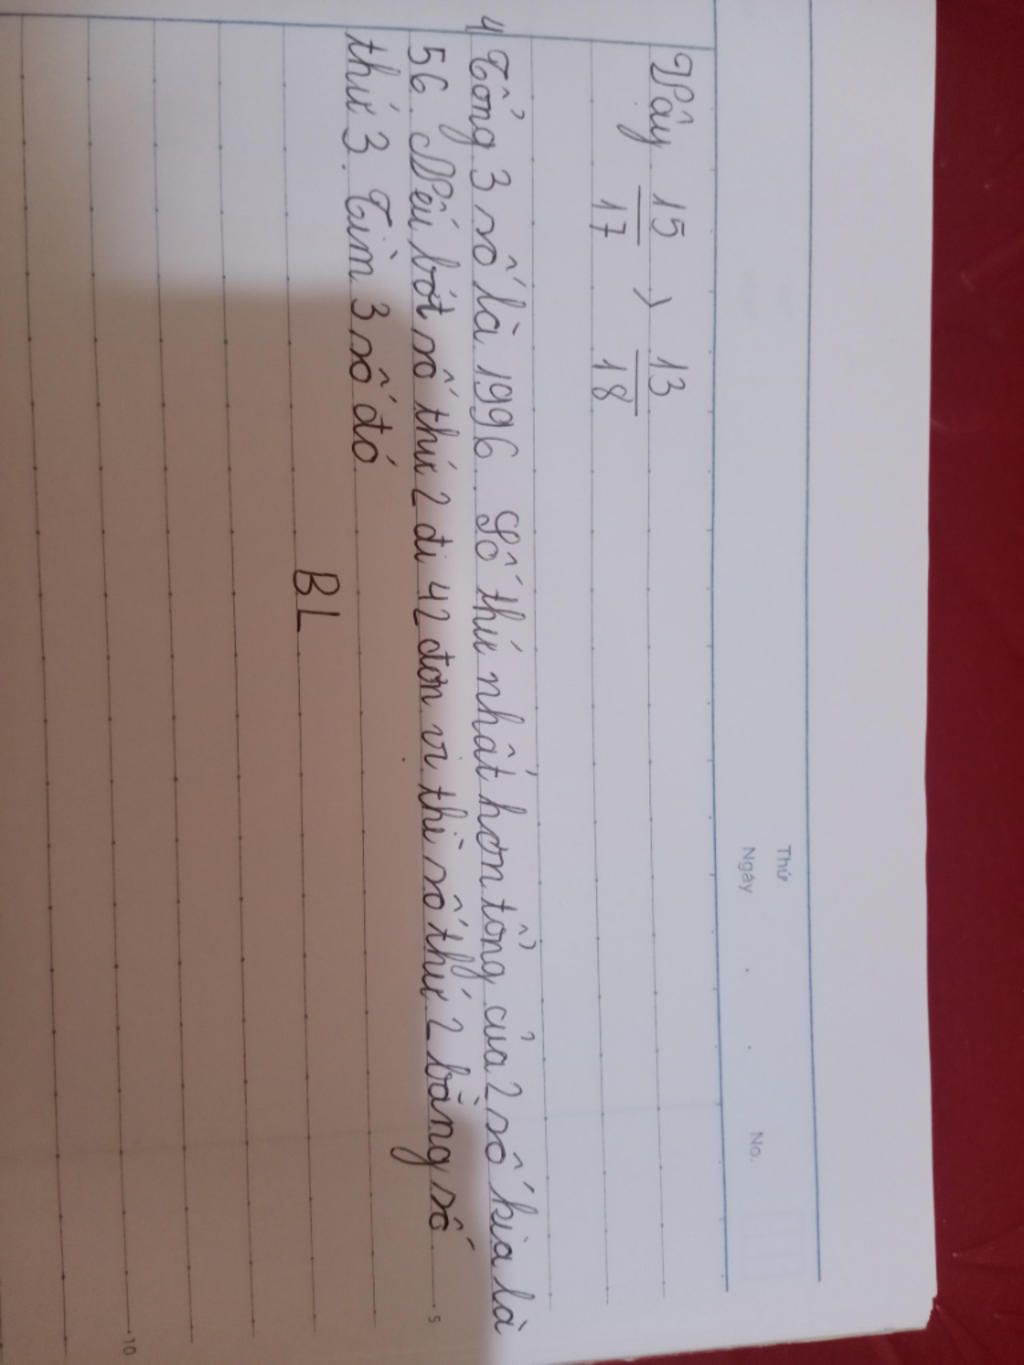 Thứ
Ngày . . No.
Vậy 15/17 > 13/18
4, Tổng 3 số là 1996. Số thứ nhất hơn tổng của 2 số kia là
56. Nếu bớt số thứ 2 đi 42 đơn vị thì số thứ 2 bằng số
thứ 3. Tìm 3 số đó
BL
5
10